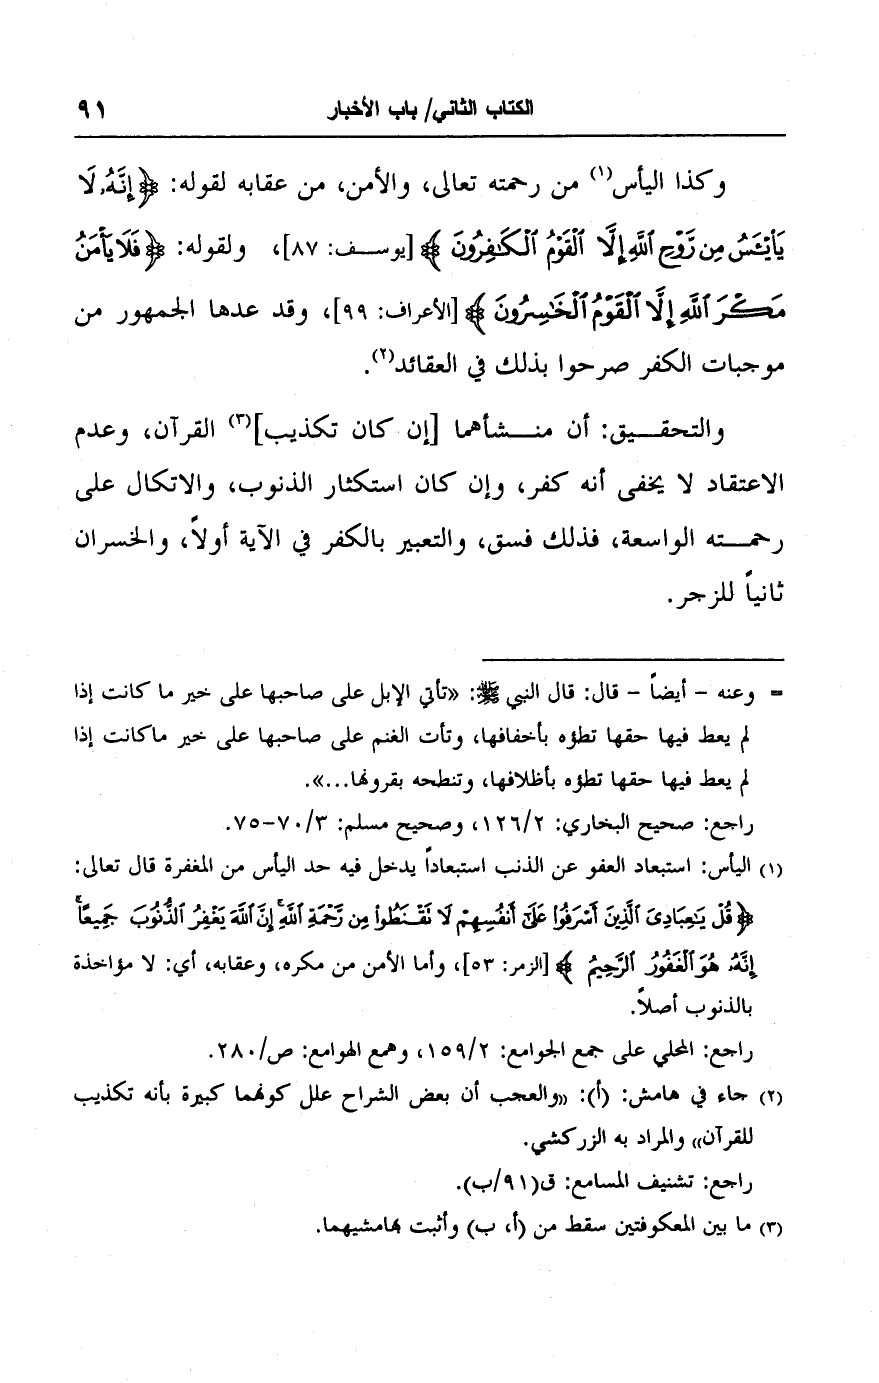 الكتاب الثاني/ باب الأخبار ٩١
وكذا اليأس(١) من رحمته تعالى، والأمن، من عقابه لقوله: ﴿إِنَّهُۥ لَا
يَا۟يْـَٔسُ مِن رَّوْحِ ٱللَّهِ إِلَّا ٱلْقَوْمُ ٱلْكَٰفِرُونَ﴾ [يوسف: ٨٧]، ولقوله: ﴿فَلَا يَأْمَنُ
مَكْرَ ٱللَّهِ إِلَّا ٱلْقَوْمُ ٱلْخَٰسِرُونَ﴾ [الأعراف: ٩٩]، وقد عدها الجمهور من
موجبات الكفر صرحوا بذلك في العقائد(٢).
والتحقيق: أن منشأهما [إن كان تكذيب](٣) القرآن، وعدم
الاعتقاد لا يخفى أنه كفر، وإن كان استكثار الذنوب، والاتكال على
رحمته الواسعة، فذلك فسق، والتعبير بالكفر في الآية أولاً، والخسران
ثانياً للزجر.
= وعنه – أيضاً – قال: قال النبي ﷺ: «تأتي الإبل على صاحبها على خير ما كانت إذا
لم يعط فيها حقها تطؤه بأخفافها، وتأت الغنم على صاحبها على خير ماكانت إذا
لم يعط فيها حقها تطؤه بأظلافها، وتنطحه بقرونها...».
راجع: صحيح البخاري: ١٢٦/٢، وصحيح مسلم: ٧٠/٣–٧٥.
(١) اليأس: استبعاد العفو عن الذنب استبعاداً يدخل فيه حد اليأس من المغفرة قال تعالى:
﴿قُلْ يَٰعِبَادِىَ ٱلَّذِينَ أَسْرَفُوا۟ عَلَىٰٓ أَنفُسِهِمْ لَا تَقْنَطُوا۟ مِن رَّحْمَةِ ٱللَّهِ ۚ إِنَّ ٱللَّهَ يَغْفِرُ ٱلذُّنُوبَ جَمِيعًا ۚ
إِنَّهُۥ هُوَ ٱلْغَفُورُ ٱلرَّحِيمُ﴾ [الزمر: ٥٣]، وأما الأمن من مكره، وعقابه، أي: لا مؤاخذة
بالذنوب أصلاً.
راجع: المحلي على جمع الجوامع: ١٥٩/٢، وهمع الهوامع: ص/٢٨٠.
(٢) جاء في هامش: (أ): «والعجب أن بعض الشراح علل كونهما كبيرة بأنه تكذيب
للقرآن» والمراد به الزركشي.
راجع: تشنيف المسامع: ق(٩١/ب).
(٣) ما بين المعكوفتين سقط من (أ، ب) وأثبت بهامشيهما.